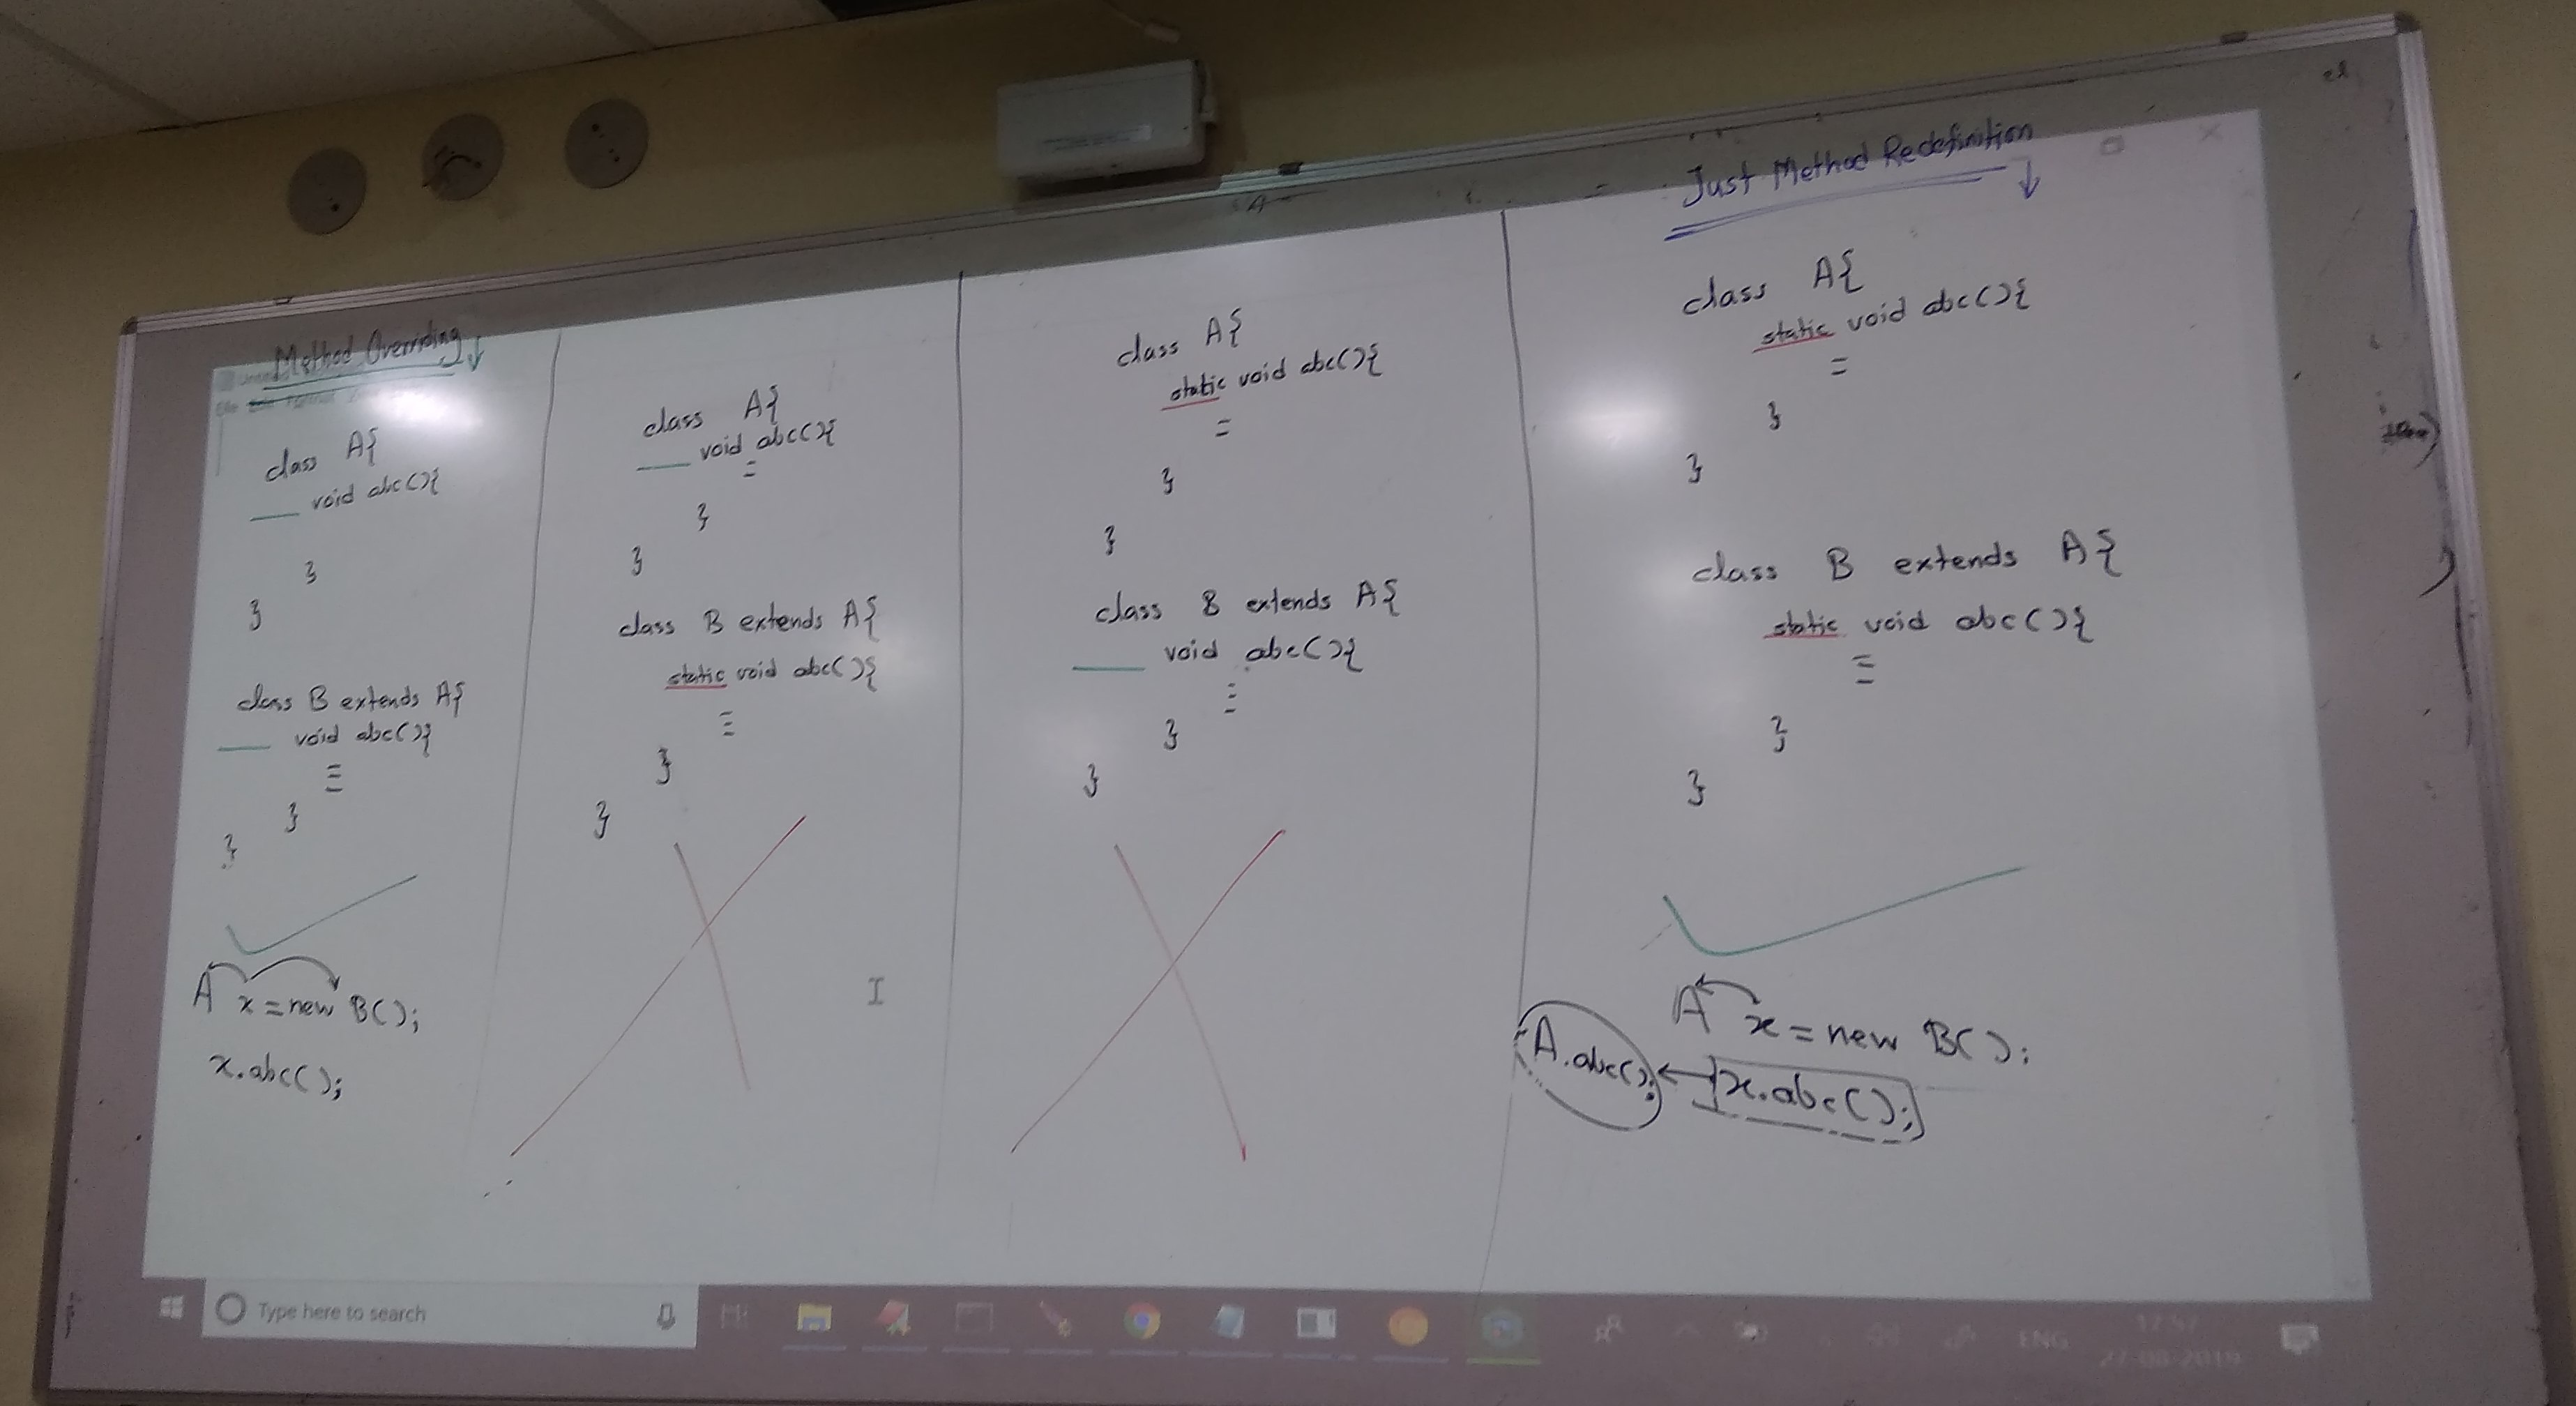 Method Overriding
class A{
void abc(){
}
}
class B extends A{
void abc(){
}
}
A x = new B();
x.abc();
class A{
void abc(){
}
}
class B extends A{
static void abc(){
}
}
class A{
static void abc(){
}
}
class B extends A{
void abc(){
}
}
Just Method Redefinition
class A{
static void abc(){
}
}
class B extends A{
static void abc(){
}
}
A x = new B();
A.abc(); x.abc();
Type here to search
ENG
17:57
27-08-2019